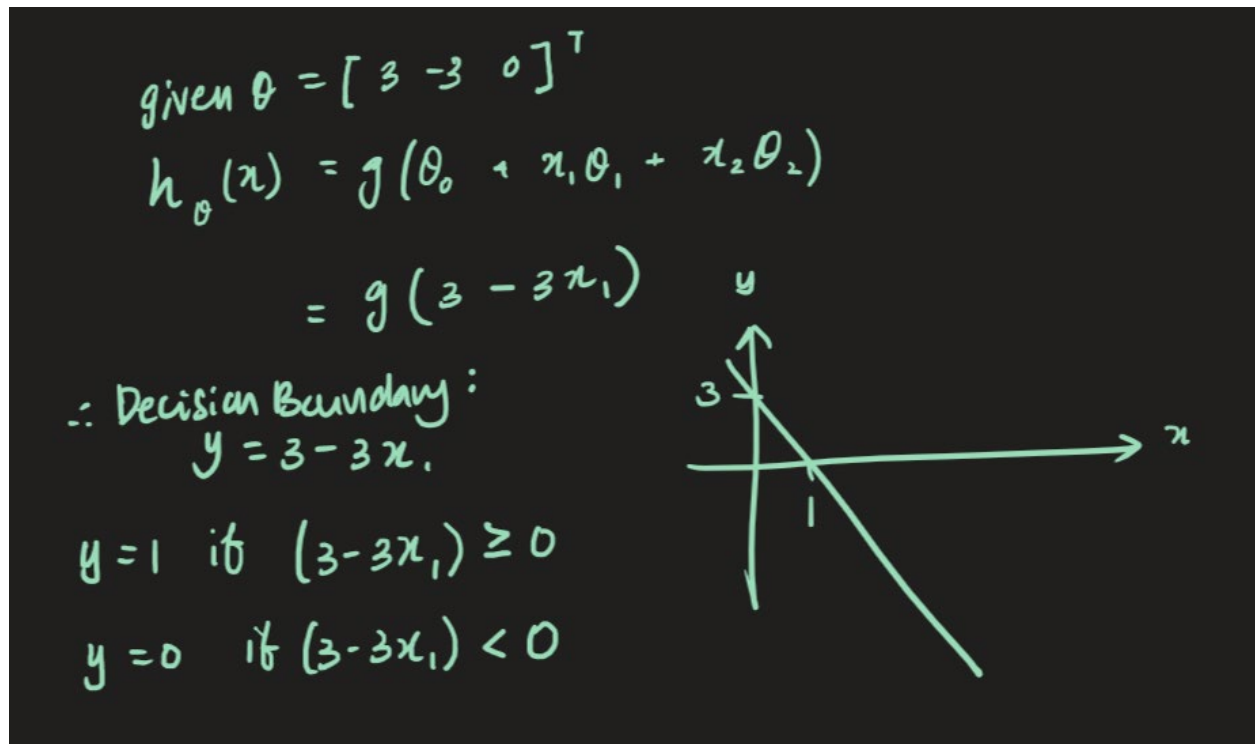 given θ = [ 3 -3 0 ]ᵀ
h_θ(x) = g(θ₀ + x₁θ₁ + x₂θ₂)
= g(3 - 3x₁)
∴ Decision Boundary:
y = 3 - 3x₁
y = 1 if (3-3x₁) ≥ 0
y = 0 if (3-3x₁) < 0
y
3
x
1